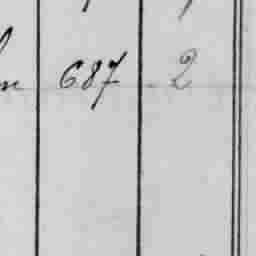 687 2